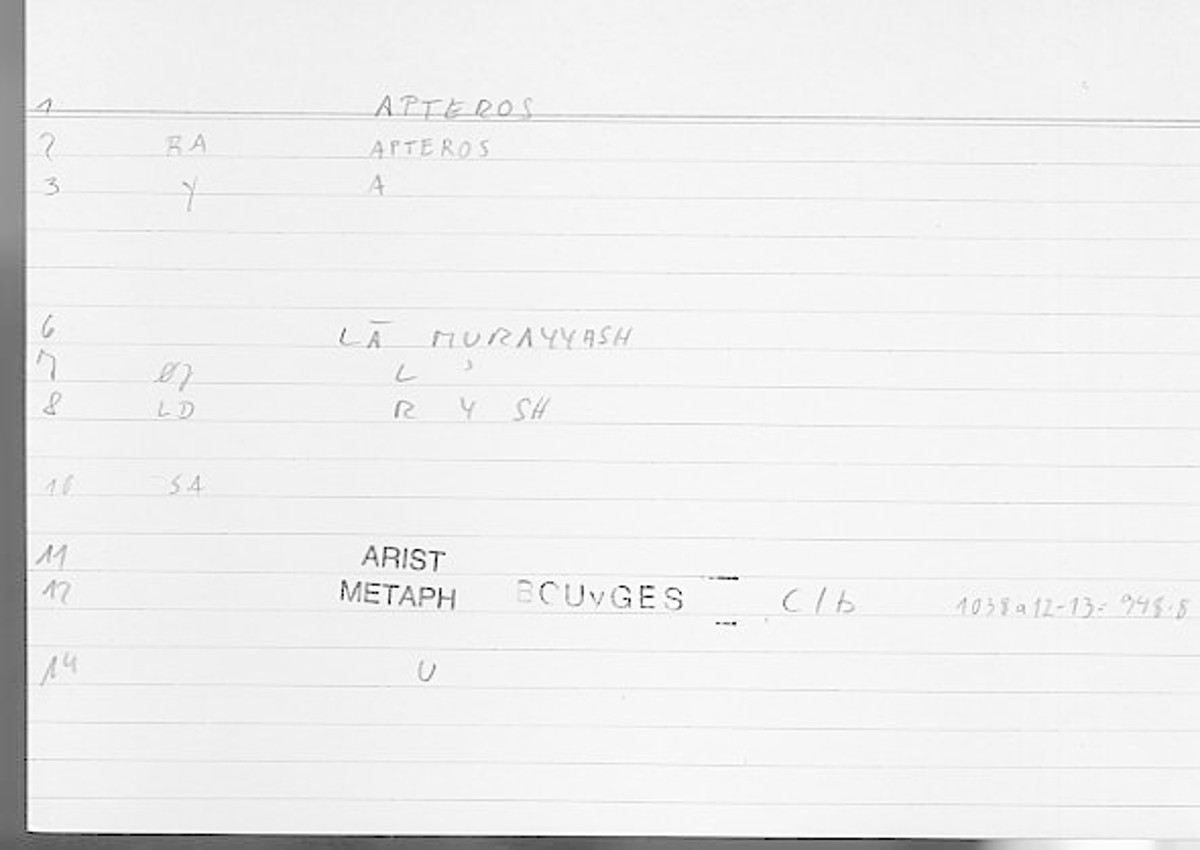 1 APTEROS
2 RA APTEROS
3 Y A
6 LĀ MURAYYASH
7 Ø7 L ʾ
8 LD R Y SH
10 SA
11 ARIST
12 METAPH BCUvGES C/b 1038a12-13: 948.8
14 U